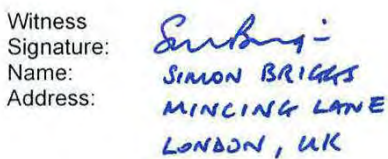 Witness
Signature:
Name: SIMON BRIGGS
Address: MINCING LANE
LONDON, UK